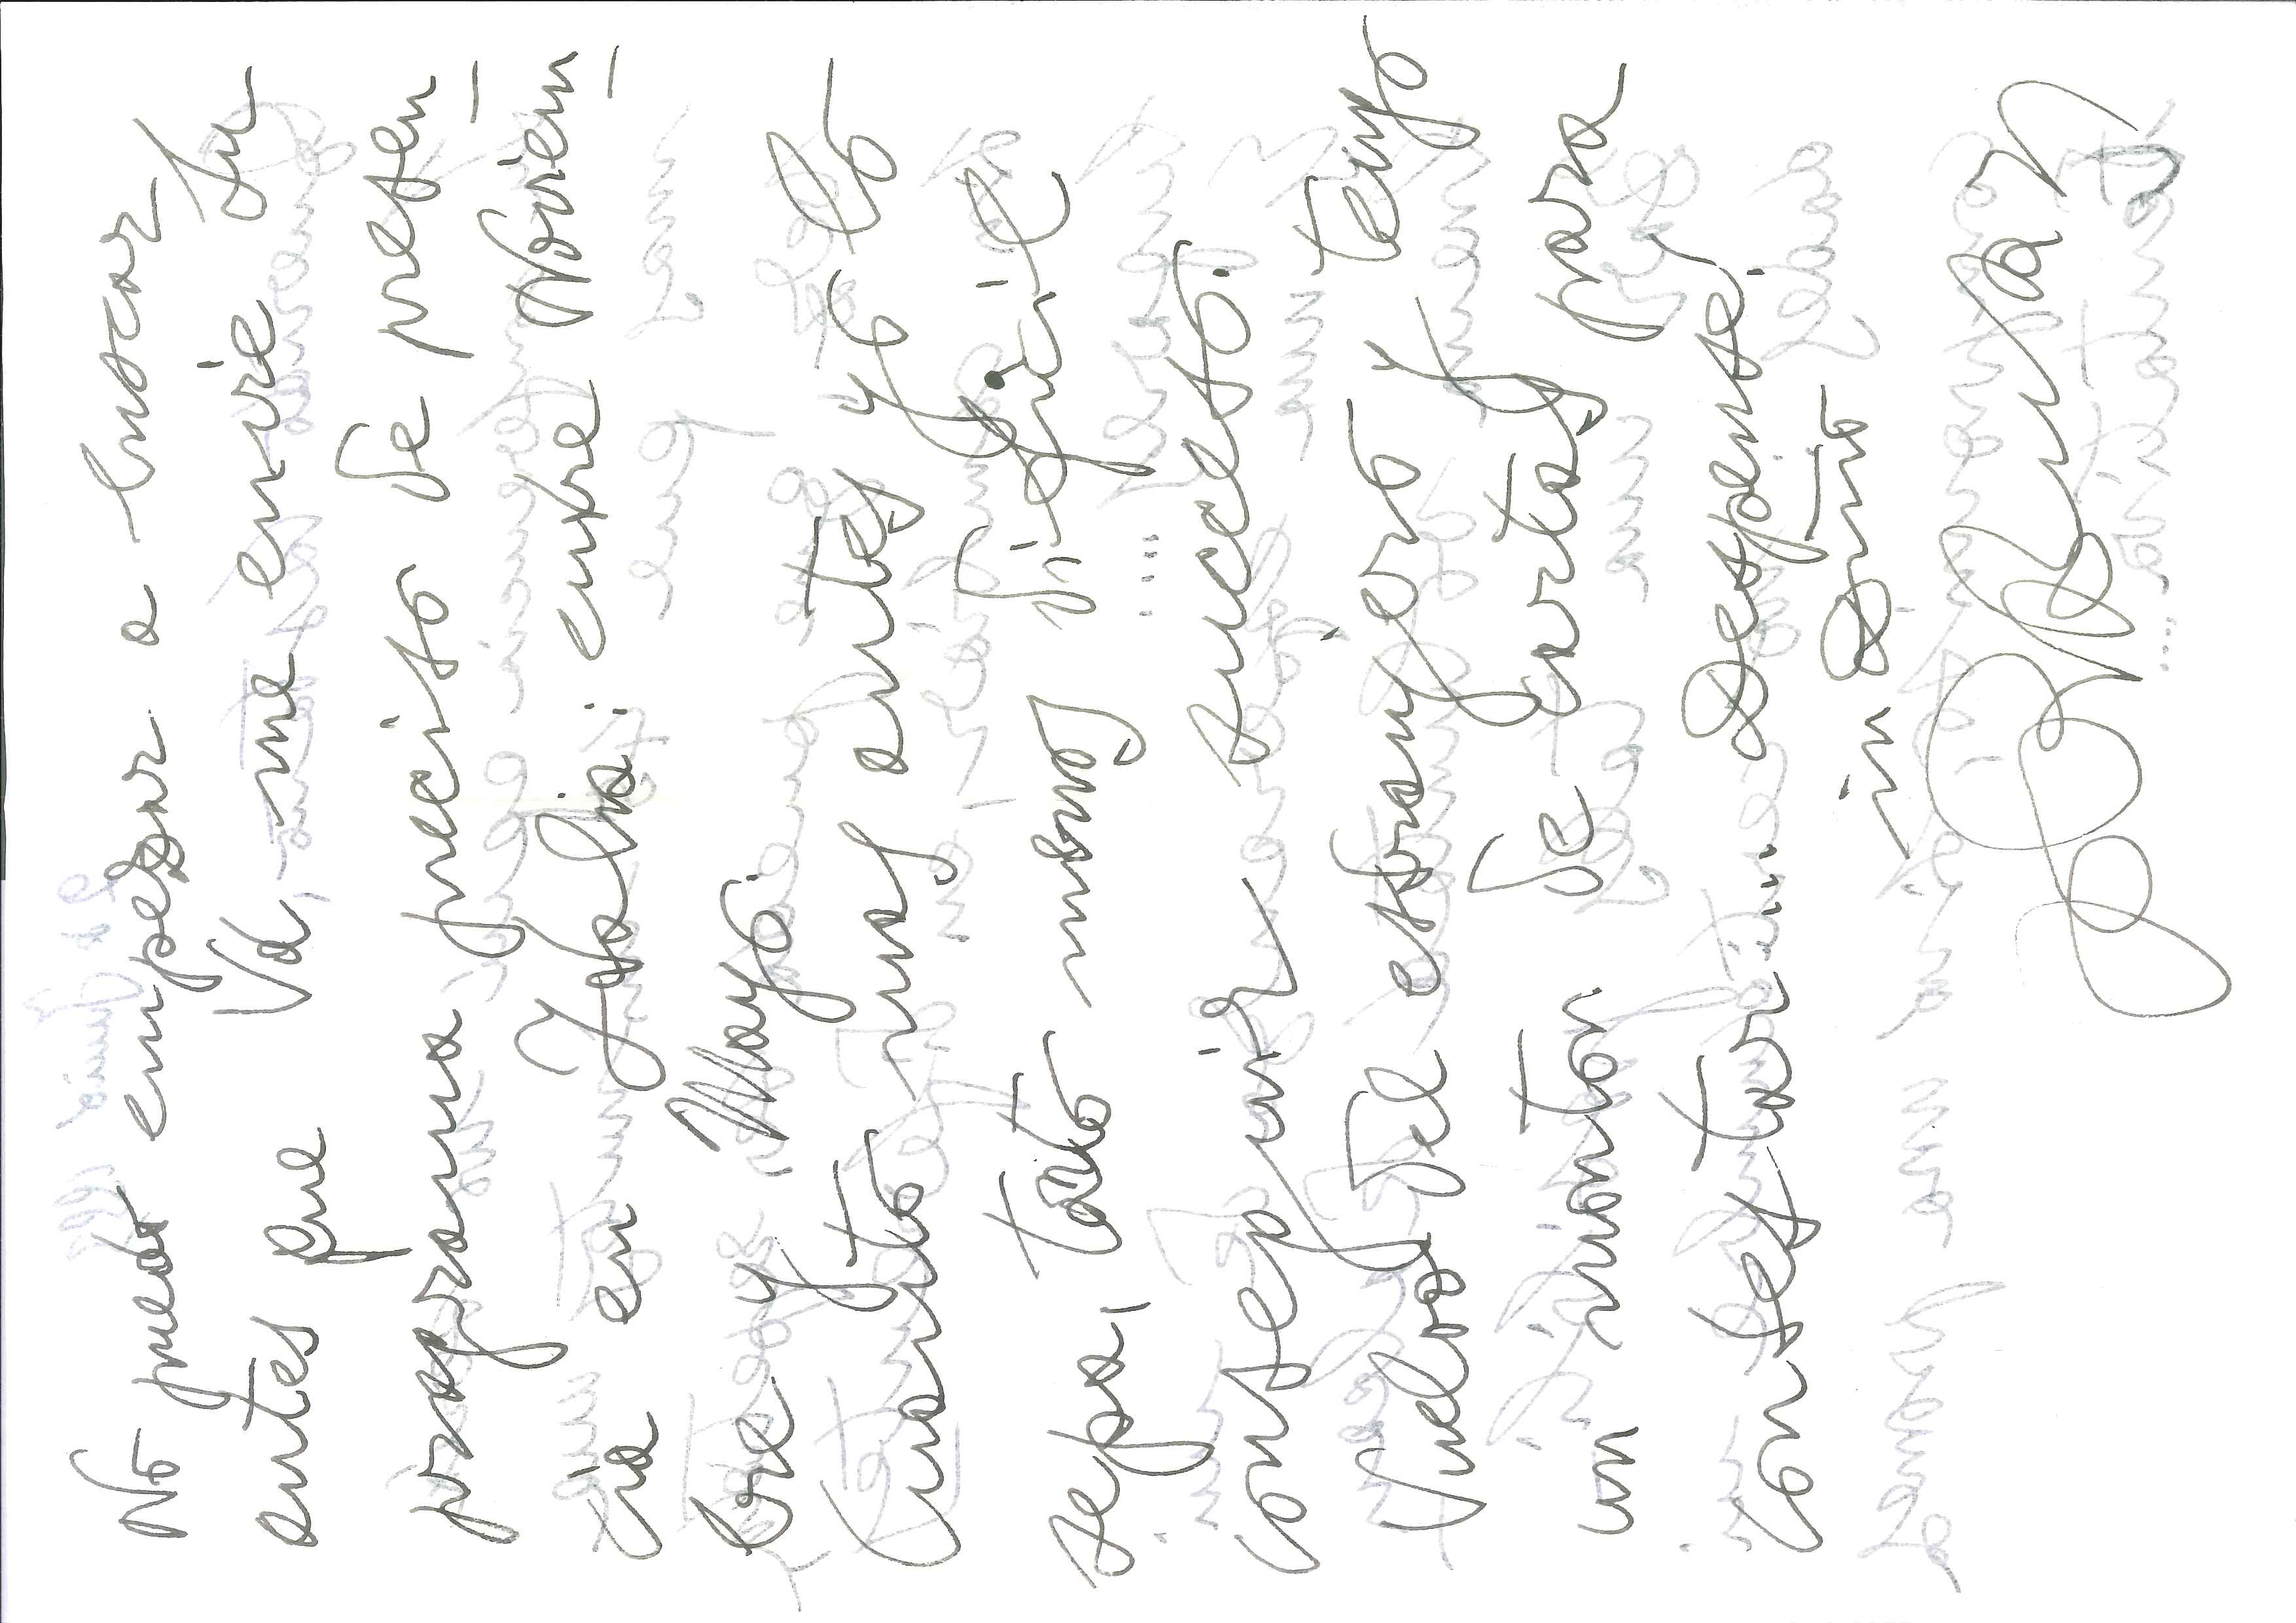 No puedo empezar a buscar
antes que Vd, me envíe Su
programa preciso de presen
cia en Italia: entre Noviem
bre y Mayo.
Cuanto mas antes yo lo
sepa, tanto menos difícil
conseguir succeso.
Vuelvo del estranjero y tengo
un monton de cartas para
contestar... Despense!
in Dño